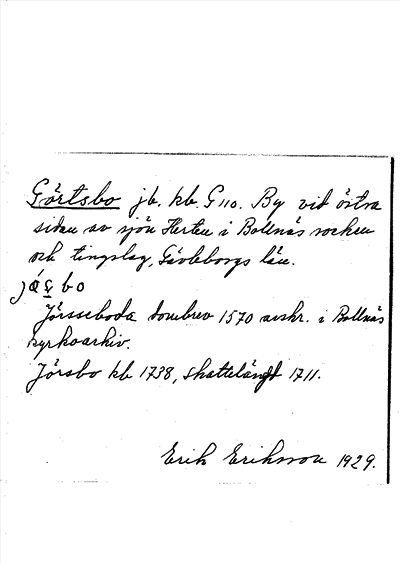 Görtsbo jb. kb. G 110. By vid östra
sidan av sjön Herten i Bollnäs socken
och tingslag, Gävleborgs län.
bo
Jörsseboda dombrev 1570 avskr. i Bollnäs
kyrkoarkiv.
Jörsbo kb 1738, skattelängd 1711.
Erik Eriksson 1929.